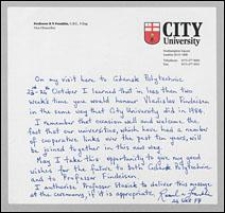 CITY
University
On my visit here to Gdansk Polytechnic
October I learned that in less than two
weeks time you would honour Vladislav Findeisen
in the same way that City University did in 1984.
I remember that occasion well and welcome the
fact that our universities, which have had a number
of cooperative links over the past ten years, will
be joined together in this new way.
May I take this opportunity to give my good
wishes for the future to both Gdansk Polytechnic
and to Professor Findeisen.
I authorise Professor to deliver this message
at the ceremony, if it is appropriate.